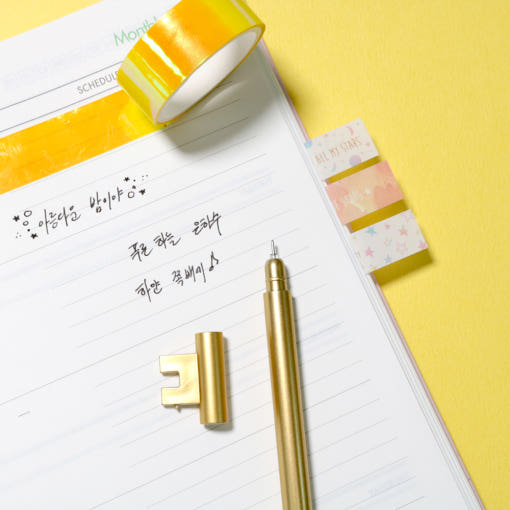 Monthly
SCHEDULE
ALL MY STARS
아름다운 밤이야
푸른 하늘 은하수
하얀 쪽배에